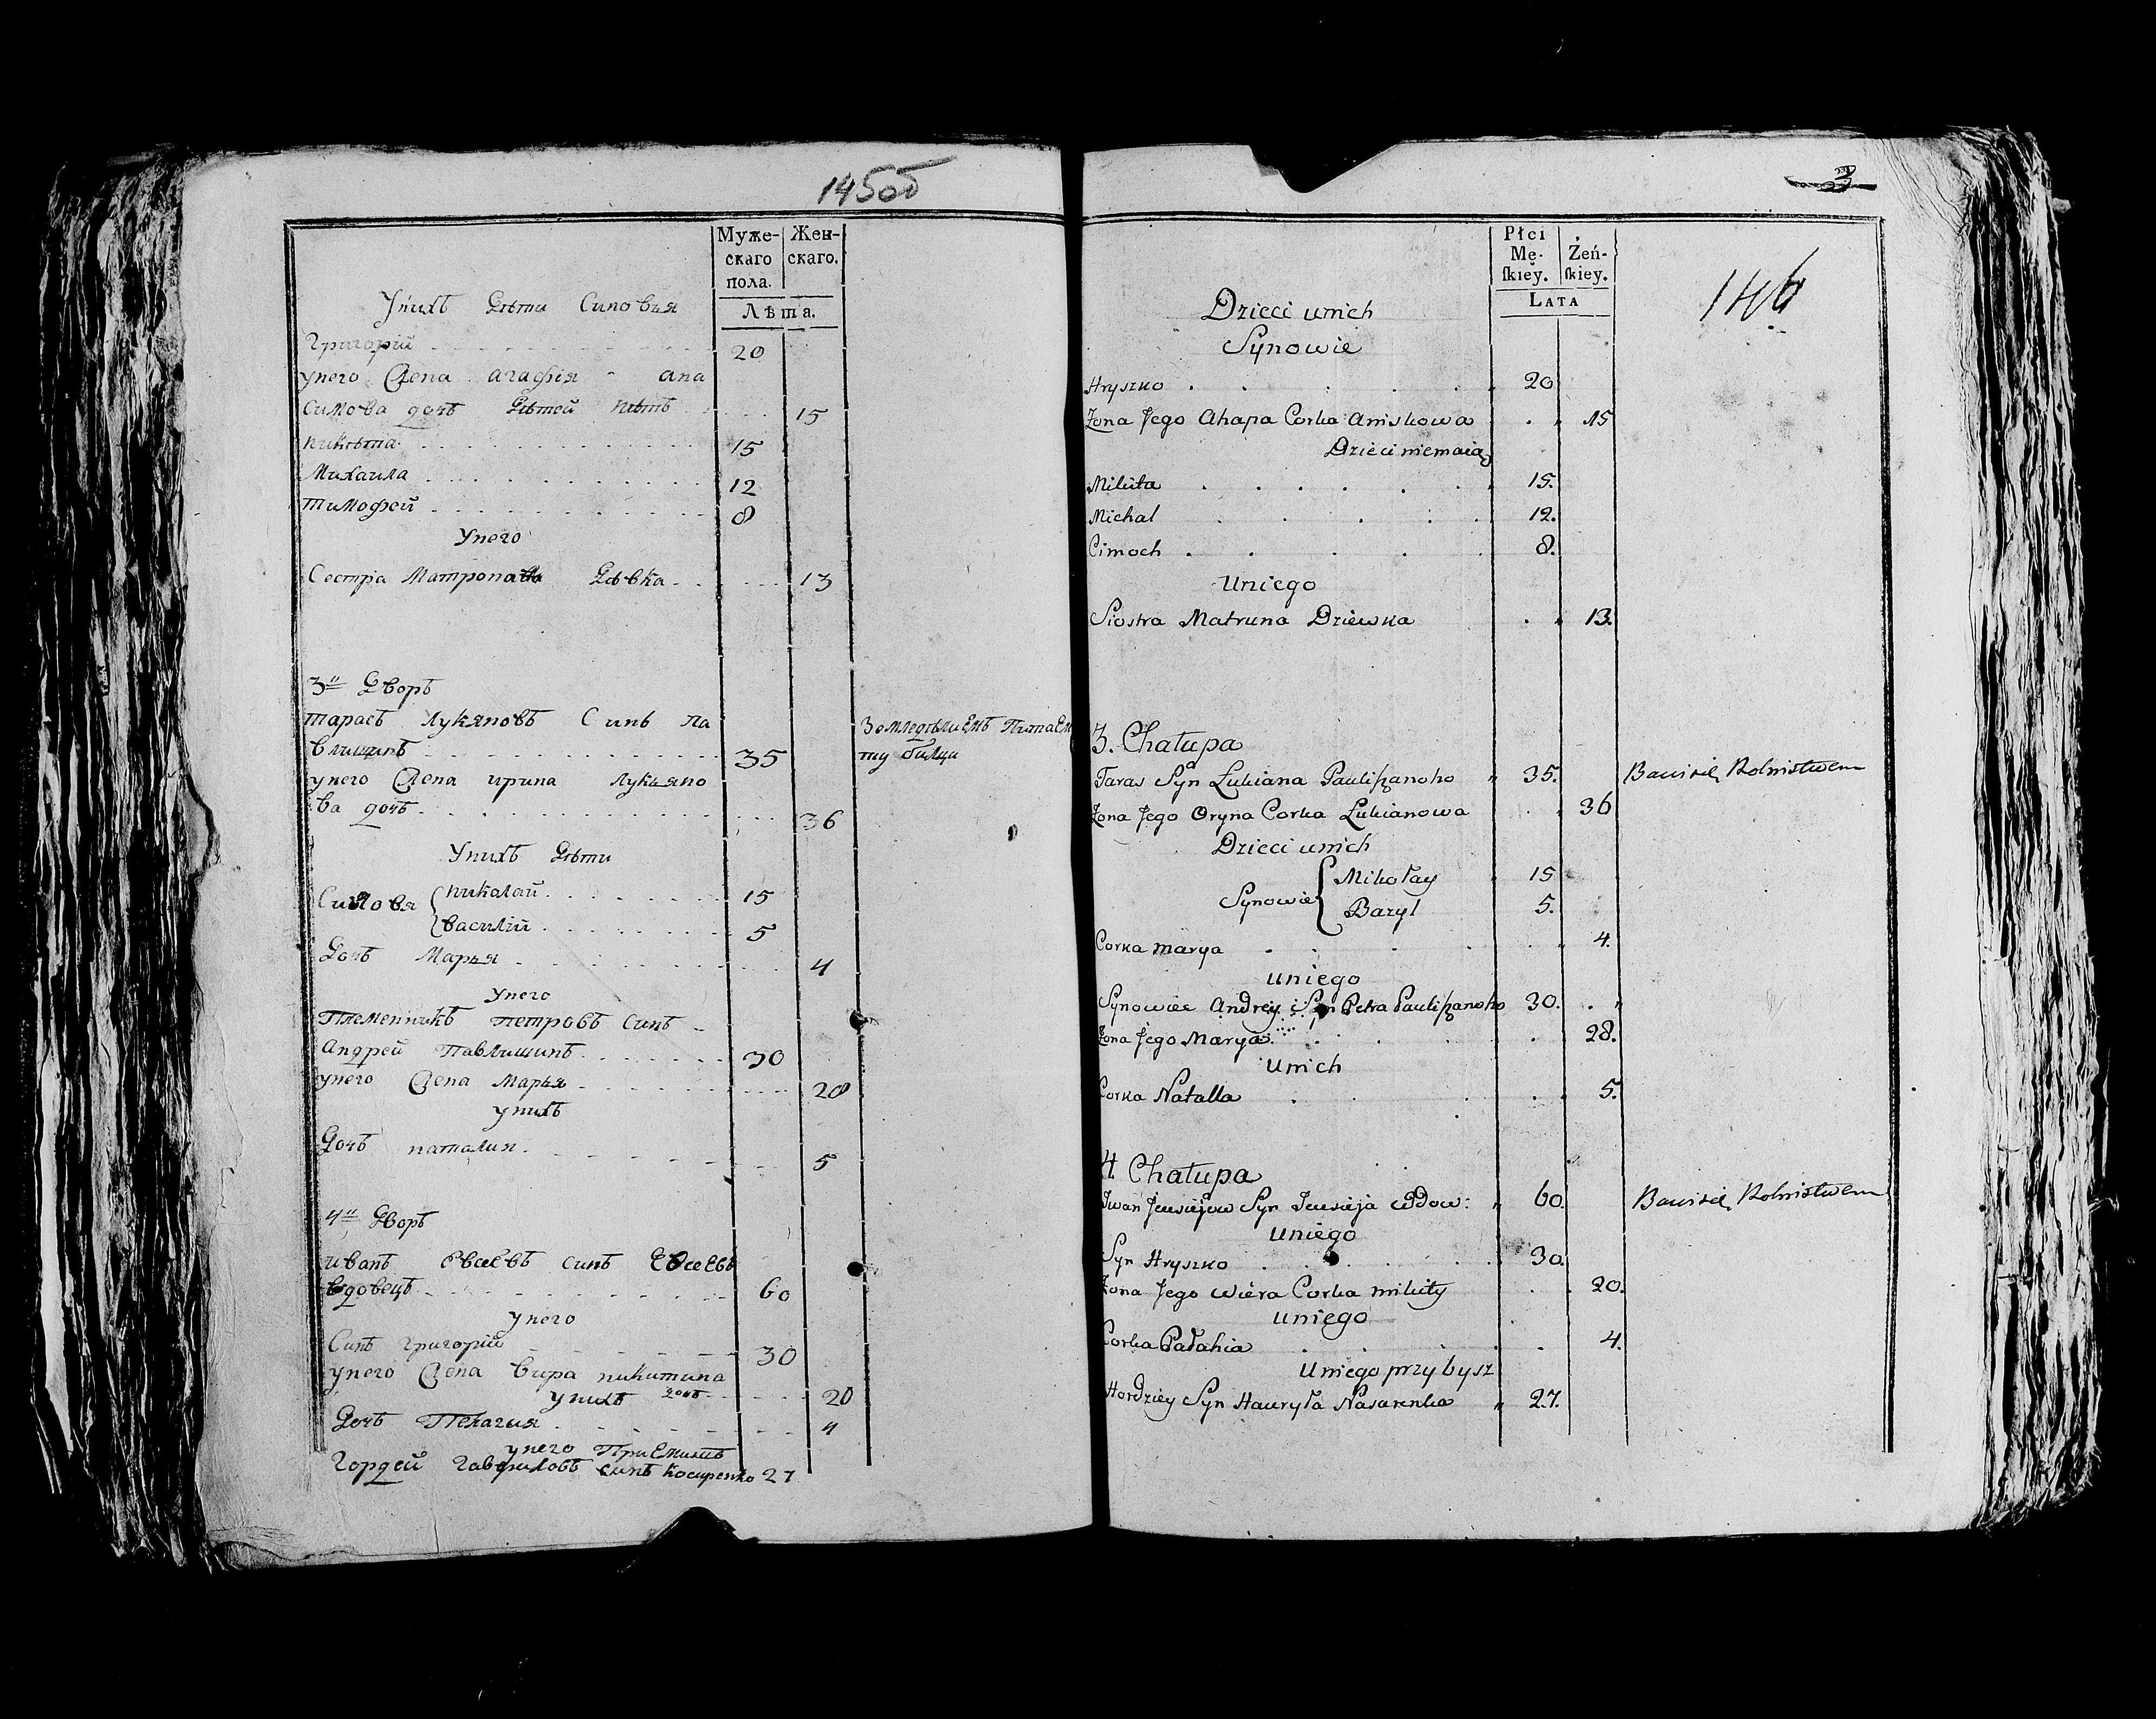 145об
Муже-
скаго
пола.
Жен-
скаго.
Лѣта.
Унихъ Дѣти Синовья
Григорій 20
унего Жена агафія ана
симова дочь Дѣтей нѣтъ 15
никѣта 15
Михаила 12
тимофей 8
Унего
Сестра Матрона Дѣвка 13
3й Дворъ
тарасъ Лукяновъ Синъ па
влишинъ 35
Земледѣлиемъ Питаем
ту билци
унего Жена ирина лукьяно
ва дочь 36
Унихъ Дѣти
Синовя николай 15
василій 5
Дочь Марья 4
Унего
Племенникъ петровъ синъ
Андрей Павлишинъ 30
унего Жена Марья 28
унихъ
Дочь наталия 5
4й Дворъ
иванъ евсеевъ синъ Евсеевъ
вдовецъ 60
унего
Синъ григорій 30
унего Жена вира никитина
унихъ дочь 20
Дочь Пелагия 4
унего Приемишъ
Гордей гавриловъ синъ Косиренко 27
3
146
Płci
Mę-
skiey.
Żeń-
skiey.
LATA
Dzieci unich
Synowie
Hryszko 20
Zona Jego Ahapa Corka Aniskowa 15
Dzieci niemaią
Mikita 15.
Michal 12.
Cimoch 8.
Uniego
Siostra Matruna Dziewka 13.
3. Chałupa
Taras Syn Łukiana Pauliszanoho 35. Bawisię Rolnistwem
Zona Jego Oryna Corka Łukianowa 36
Dzieci unich
Synowie Mikołay 15
Bazyl 5.
Corka marya 4.
uniego
Synowiec Andrey Syn Petra Pauliszanoho 30.
Zona Jego Marya 28.
Unich
Corka Natalla 5.
4. Chałupa
Iwan Jewsiejew Syn Jewsieja Wdow: 60. Bawisię Rolnistwem
uniego
Syn Hryszko 30.
Zona Jego Wiera Corka mikity 20.
uniego
Corka Pałahia 4.
Uniego przybysz
Hordziey Syn Hawryła Nasarenka 27.